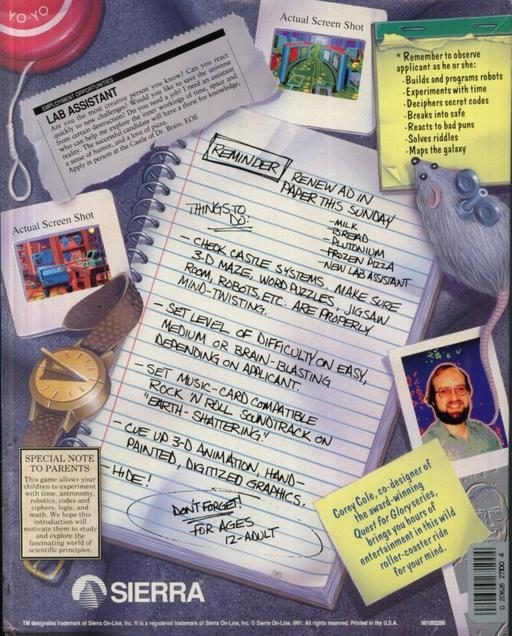 YO-YO
EMPLOYMENT OPPORTUNITIES
LAB ASSISTANT
Are you the most creative person you know? Can you react
quickly to new challenges? Would you like to save the universe
from certain destruction? Do you need a job? I need an assistant
who can help me explore the inner workings of time, space and
reality. The successful candidate will have a thirst for knowledge,
a sense of humor, and a love of pizza.
Apply in person at the Castle of Dr. Brain. EOE
Actual Screen Shot
* Remember to observe
applicant as he or she:
- Builds and programs robots
- Experiments with time
- Deciphers secret codes
- Breaks into safe
- Reacts to bad puns
- Solves riddles
- Maps the galaxy
Actual Screen Shot
REMINDER
RENEW AD IN
PAPER THIS SUNDAY
THINGS TO
DO:
- MILK
- BREAD
- PLUTONIUM
- FROZEN PIZZA
- NEW LAB ASSISTANT
- CHECK CASTLE SYSTEMS. MAKE SURE
3-D MAZE, WORD PUZZLES, JIGSAW
ROOM, ROBOTS, ETC. ARE PROPERLY
MIND-TWISTING.
- SET LEVEL OF DIFFICULTY ON EASY,
MEDIUM OR BRAIN-BLASTING
DEPENDING ON APPLICANT.
- SET MUSIC-CARD COMPATIBLE
ROCK 'N ROLL SOUNDTRACK ON
"EARTH-SHATTERING."
- CUE UP 3-D ANIMATION, HAND-
PAINTED, DIGITIZED GRAPHICS.
- HIDE!
DON'T FORGET!
FOR AGES
12-ADULT
SPECIAL NOTE
TO PARENTS
This game allows your
children to experiment
with time, astronomy,
robotics, codes and
ciphers, logic, and
math. We hope this
introduction will
motivate them to study
and explore the
fascinating world of
scientific principles.
Corey Cole, co-designer of
the award-winning
Quest for Glory series,
brings you hours of
entertainment in this wild
roller-coaster ride
for your mind.
SIERRA
TM designates trademark of Sierra On-Line, Inc. ® is a registered trademark of Sierra On-Line, Inc. © Sierra On-Line, 1991. All rights reserved. Printed in the U.S.A.
001000200